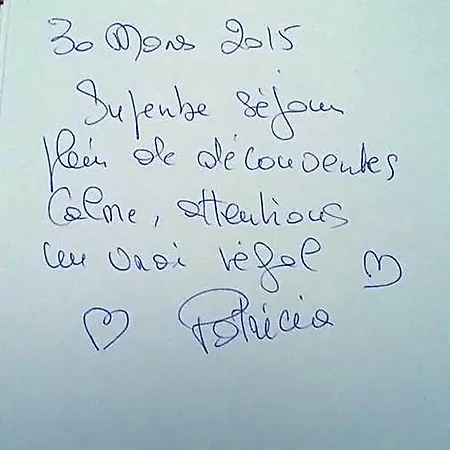 30 Mars 2015
Superbe séjour
plein de découvertes
Calme, attentions
un vrai régal
Patricia